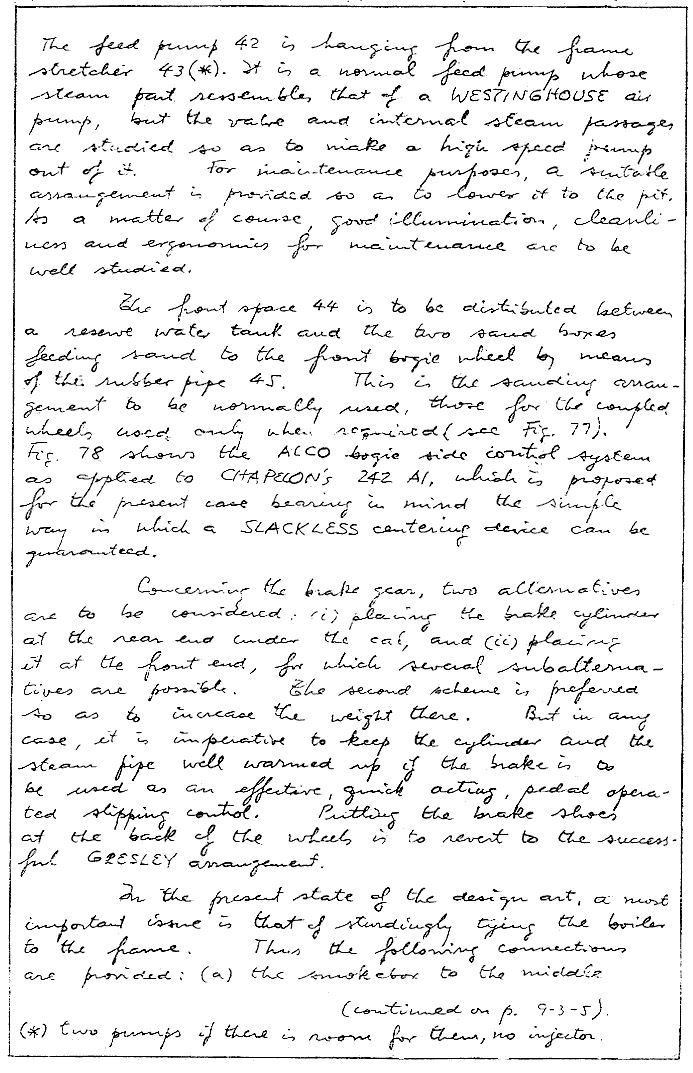 The feed pump 42 is hanging from the frame
stretcher 43(*). It is a normal feed pump whose
steam part ressembles that of a WESTINGHOUSE air
pump, but the valve and internal steam passages
are studied so as to make a high speed pump
out of it. For maintenance purposes, a suitable
arrangement is provided so as to lower it to the pit.
As a matter of course, good illumination, cleanli-
ness and ergonomics for maintenance are to be
well studied.
The front space 44 is to be distributed between
a reserve water tank and the two sand boxes
feeding sand to the front bogie wheel by means
of the rubber pipe 45. This is the sanding arran-
gement to be normally used, those for the coupled
wheels used only when required (see Fig. 77).
Fig. 78 shows the ALCO bogie side control system
as applied to CHAPELON's 242 A1, which is proposed
for the present case bearing in mind the simple
way in which a SLACKLESS centering device can be
guaranteed.
Concerning the brake gear, two alternatives
are to be considered: (i) placing the brake cylinder
at the rear end under the cab, and (ii) placing
it at the front end, for which several subalterna-
tives are possible. The second scheme is preferred
so as to increase the weight there. But in any
case, it is imperative to keep the cylinder and the
steam pipe well warmed up if the brake is to
be used as an effective, quick acting, pedal opera-
ted slipping control. Putting the brake shoes
at the back of the wheels is to revert to the success-
ful GRESLEY arrangement.
In the present state of the design art, a most
important issue is that of sturdingly tying the boiler
to the frame. Thus the following connections
are provided: (a) the smokebox to the middle
(continued on p. 9-3-5).
(*) two pumps if there is room for them, no injector.